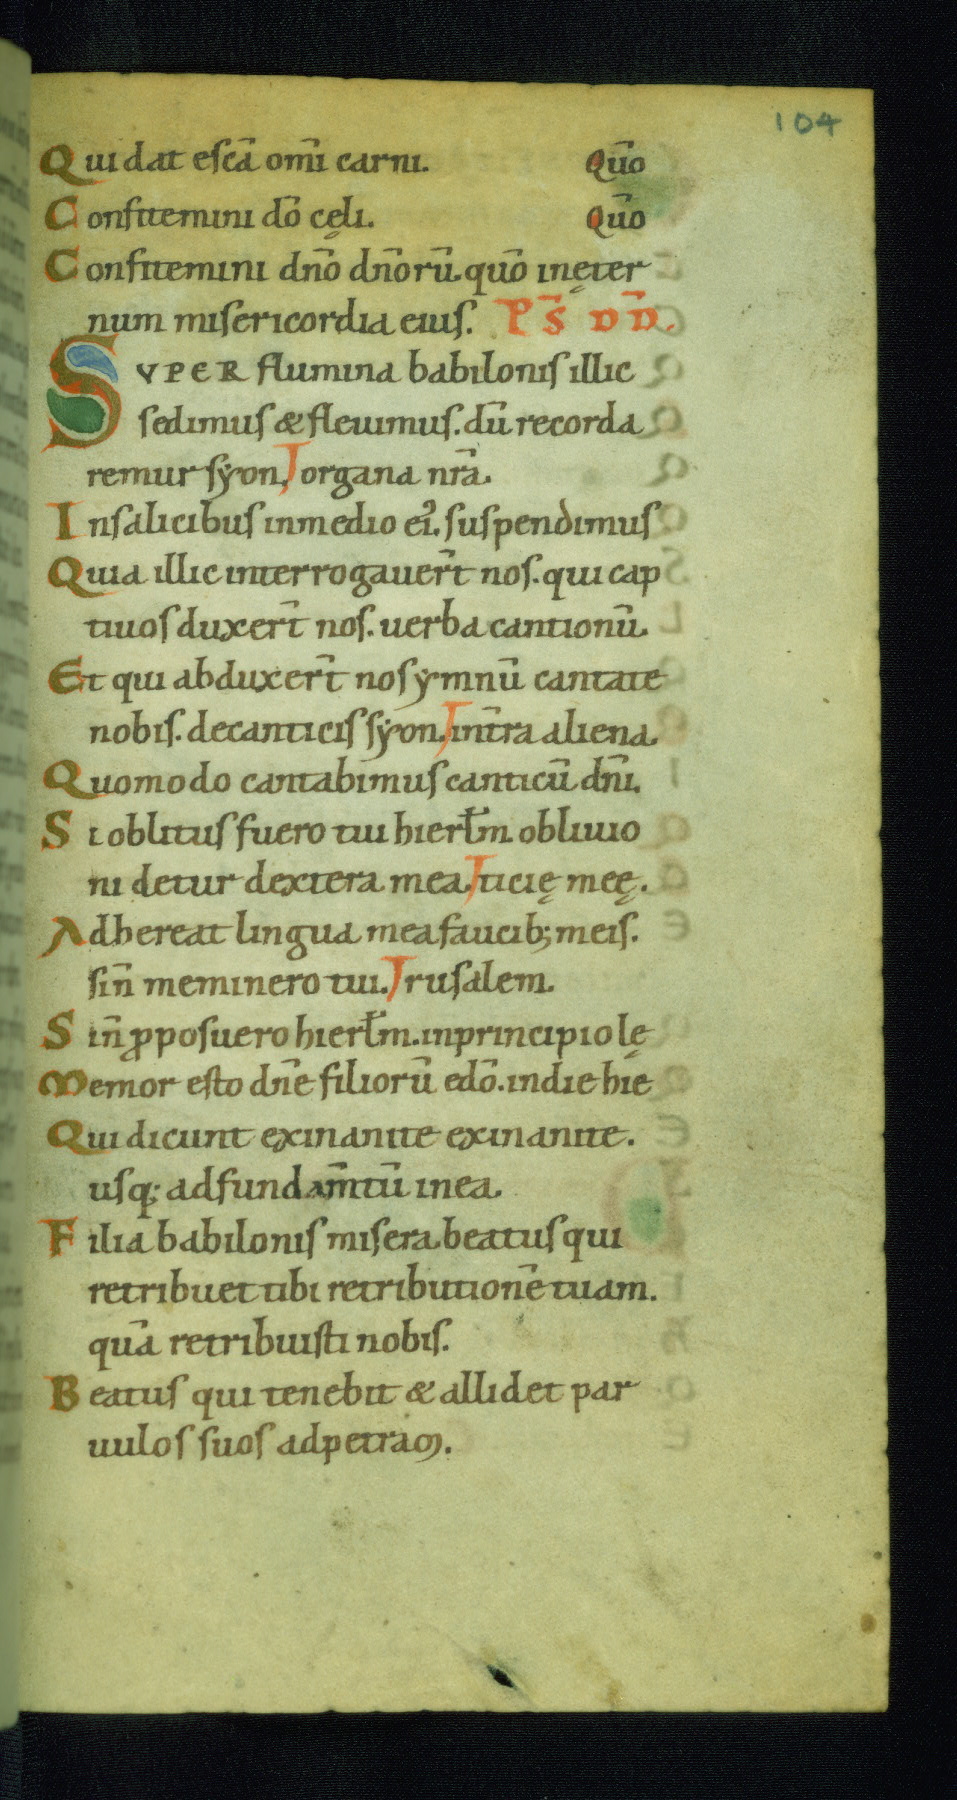 104
Qui dat escā om̄i carni. Quō
Confitemini dō cęli. Quō
Confitemini dn̄o dn̄orū. quō in ęter
num misericordia eius. P̄S D̄D.
SVPER flumina babilonis illic
sedimus & fleuimus. dū recorda
remur sẏon. organa nr̄a.
In salicibus in medio ei᾽. suspendimus
Quia illic interrogauer̄t nos. qui cap
tiuos duxer̄t nos. uerba cantionū.
Et qui abduxer̄t nos ẏmnū cantate
nobis. de canticis sẏon. in t̄ra aliena.
Quomodo cantabimus canticū dn̄i.
Si oblitus fuero tui hierłm obliuio
ni detur dextera mea. ticię meę.
Adhereat lingua mea faucib; meis.
si n̄ meminero tui. rusalem.
Si n̄ ꝓposuero hierłm. in principio lę
Memor esto dn̄e filiorū edō. in die hie
Qui dicunt exinanite exinanite.
usq; ad fundam̄tū in ea.
Filia babilonis misera beatus qui
retribuet tibi retributionē tuam.
quā retribuisti nobis.
Beatus qui tenebit & allidet par
uulos suos ad petram.